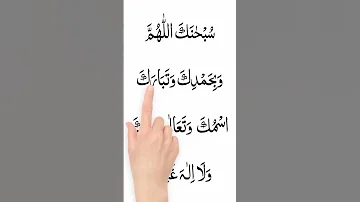 سُبْحٰنَكَ اللّٰهُمَّ
وَبِحَمْدِكَ وَتَبَارَكَ
اسْمُكَ
وَلَا اِلٰهَ